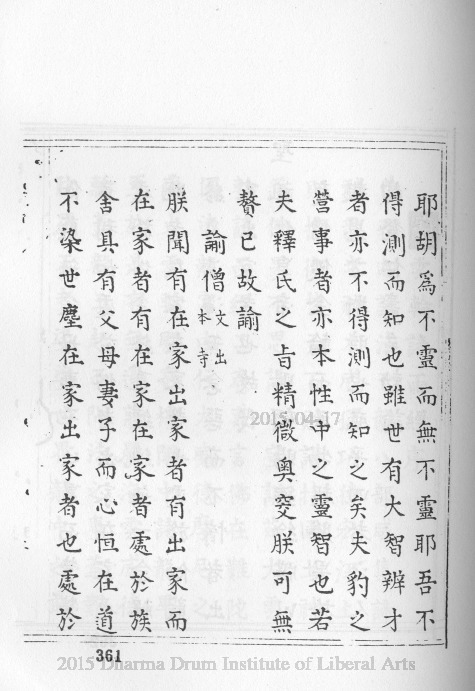 耶胡爲不靈而無不靈耶吾不
得測而知也雖世有大智辨才
者亦不得測而知之矣夫豹之
營事者亦本性中之靈智也若
夫釋氏之旨精微奧窔朕可無
贅已故諭
諭僧文出本寺
朕聞有在家出家者有出家而
在家者有在家在家者處於族
舍具有父母妻子而心恒在道
不染世塵在家出家者也處於
361
2015-04-17
2015 Dharma Drum Institute of Liberal Arts